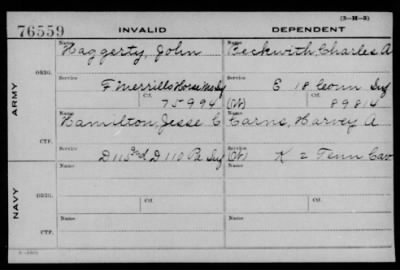 (3-H-3)
76559 INVALID DEPENDENT
Name Name
Haggerty, John Beckwith, Charles A
ORIG.
Service Service
F Merrills Horse Mo Inf E 18 Conn Inf
Ctf. Ctf.
75994 (W) 89814
ARMY
Name Name
Hamilton, Jesse C Carns, Harvey A
CTF.
Service Service
D 115 Ind D 110 Pa Inf (W) K 2 Tenn Cav
Name Name
ORIG.
Service Ctf. Service Ctf.
NAVY
Name Name
CTF.